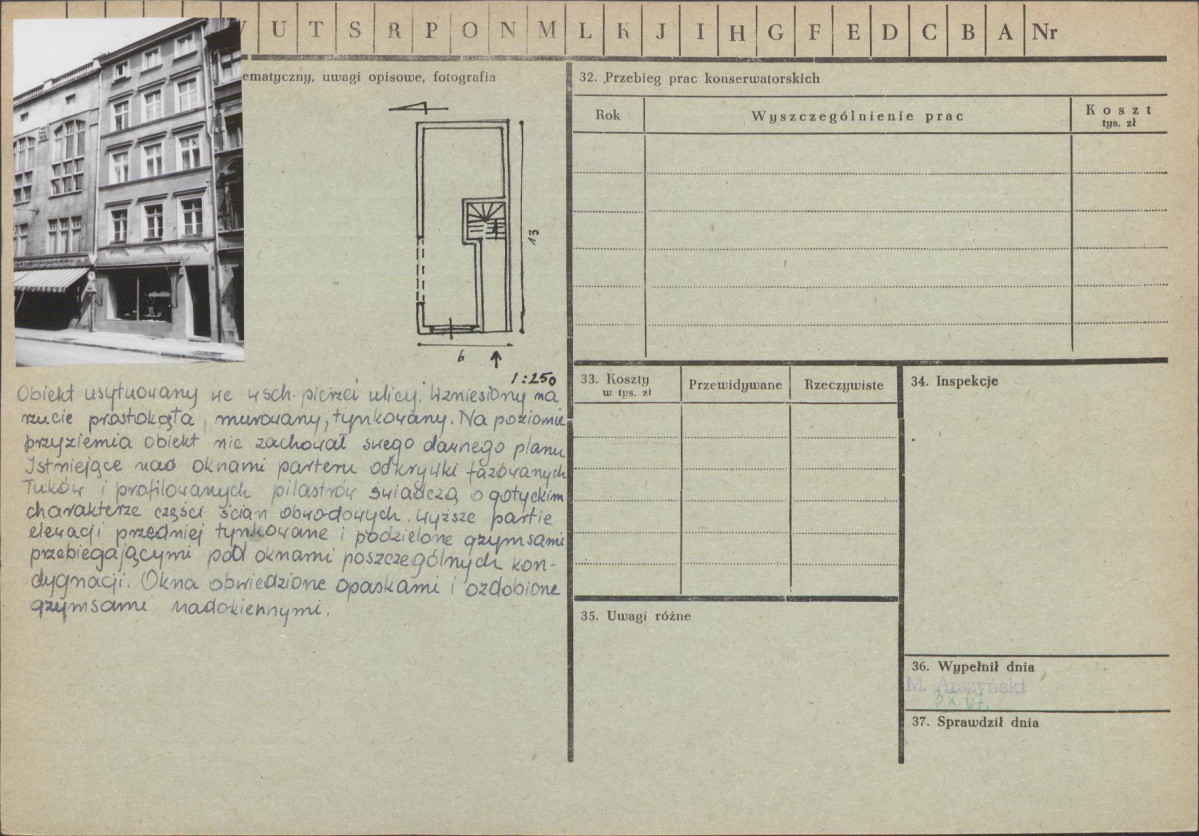 U T S R P O N M L K J I H G F E D C B A Nr
ematyczny, uwagi opisowe, fotografia
13
6
1:250
Obiekt usytuowany we wsch. pierzei ulicy. Wzniesiony na
rzucie prostokąta, murowany, tynkowany. Na poziomie
przyziemia obiekt nie zachował swego dawnego planu
Istniejące nad oknami parteru odkrywki fazowanych
łuków i profilowanych pilastrów świadczą o gotyckim
charakterze części ścian obwodowych. Wyższe partie
elewacji przedniej tynkowane i podzielone gzymsami
przebiegającymi pod oknami poszczególnych kon-
dygnacji. Okna obwiedzione opaskami i ozdobione
gzymsami nadokiennymi.
32. Przebieg prac konserwatorskich
Rok Wyszczególnienie prac Koszt
tys. zł
33. Koszty Przewidywane Rzeczywiste
w tys. zł
34. Inspekcje
35. Uwagi różne
36. Wypełnił dnia
M. Arszyński
37. Sprawdził dnia